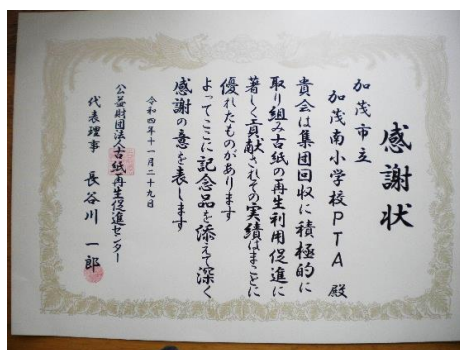 感謝状
加茂市立
加茂南小学校PTA 殿
貴会は集団回収に積極的に
取り組み古紙の再生利用促進に
著しく貢献されその実績はまことに
優れたものがあります
よってここに記念品を添えて深く
感謝の意を表します
令和四年十一月二十九日
公益財団法人古紙再生促進センター
代表理事 長谷川 一郎